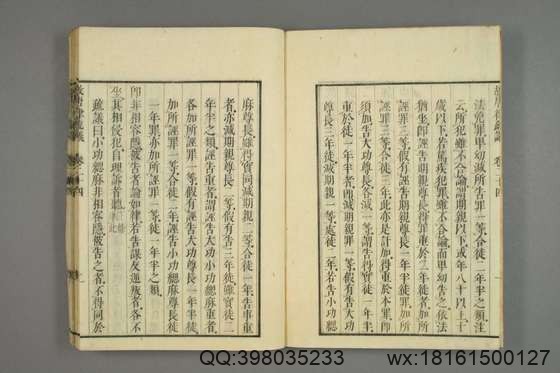 故唐律疏議
法免罪卑幼減所告罪一等合徒一年半之類注
云所犯雖不合論謂期親以下或年八十以上十
歲以下若篤疾犯罪雖不合論而卑幼告之依法
猶坐即誣告期親尊長得罪重於三年徒者加所
誣罪三等假有誣告期親尊長一年半徒罪加所
誣罪三等合徒三年此亦是計加得重於本罪即
須加告大功尊長各減一等謂告得實徒一年半
重於徒一年半徒減期親罪一等假有告大功
尊長三年徒減期親一等處徒二年若告小功緦
麻尊長雖得實同減期親二等合徒一年告事重
者亦減期親尊長二等假有告三年徒雖實徒二
年半之類誣告重者謂誣告大功小功緦麻重者
各加所誣罪一等假有誣告大功尊長一年半徒
加所誣罪一等合徒二年誣告小功緦麻尊長徒
一年罪亦加所誣一等徒一年半之類
即非相容隱被告者論如律若告謀反逆叛者各不
坐其相侵犯自理訴者聽
疏議曰小功緦麻非相容隱被告之者不得同於
故唐律疏議 卷二十四
QQ:398035233
wx:18161500127